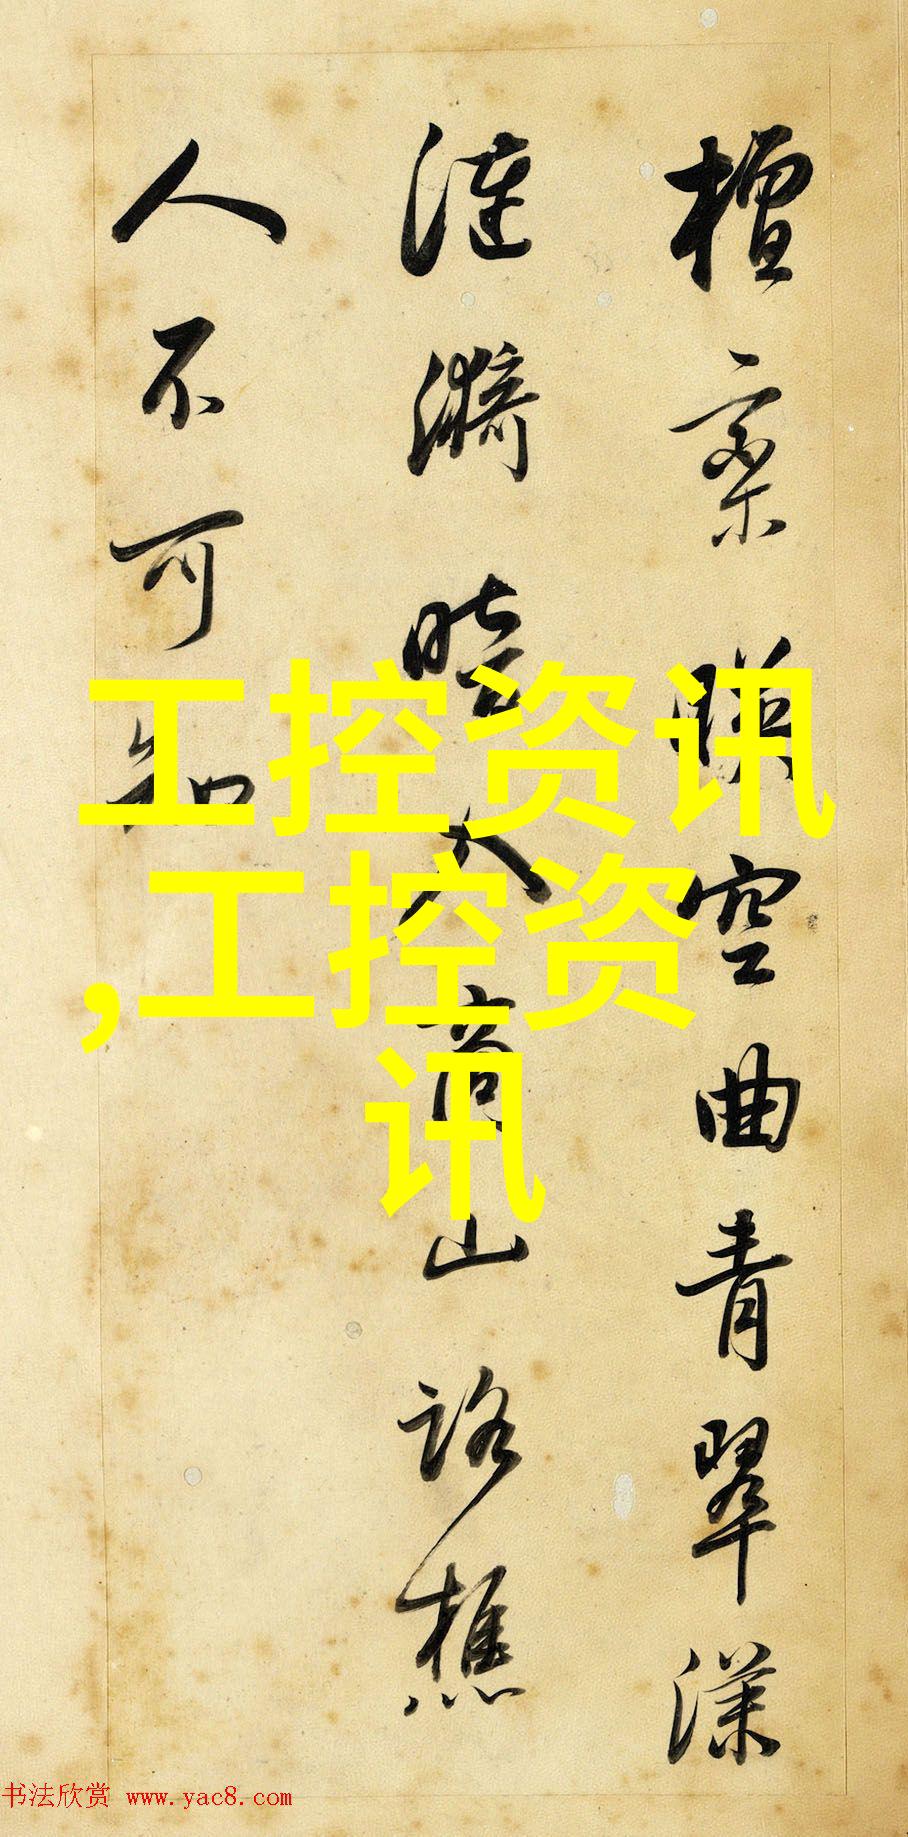 檀欒暎空曲青翠漾
漣漪暗入商山路樵
人不可知
工控资讯
,工控资
讯
书法欣赏 www.yac8.com